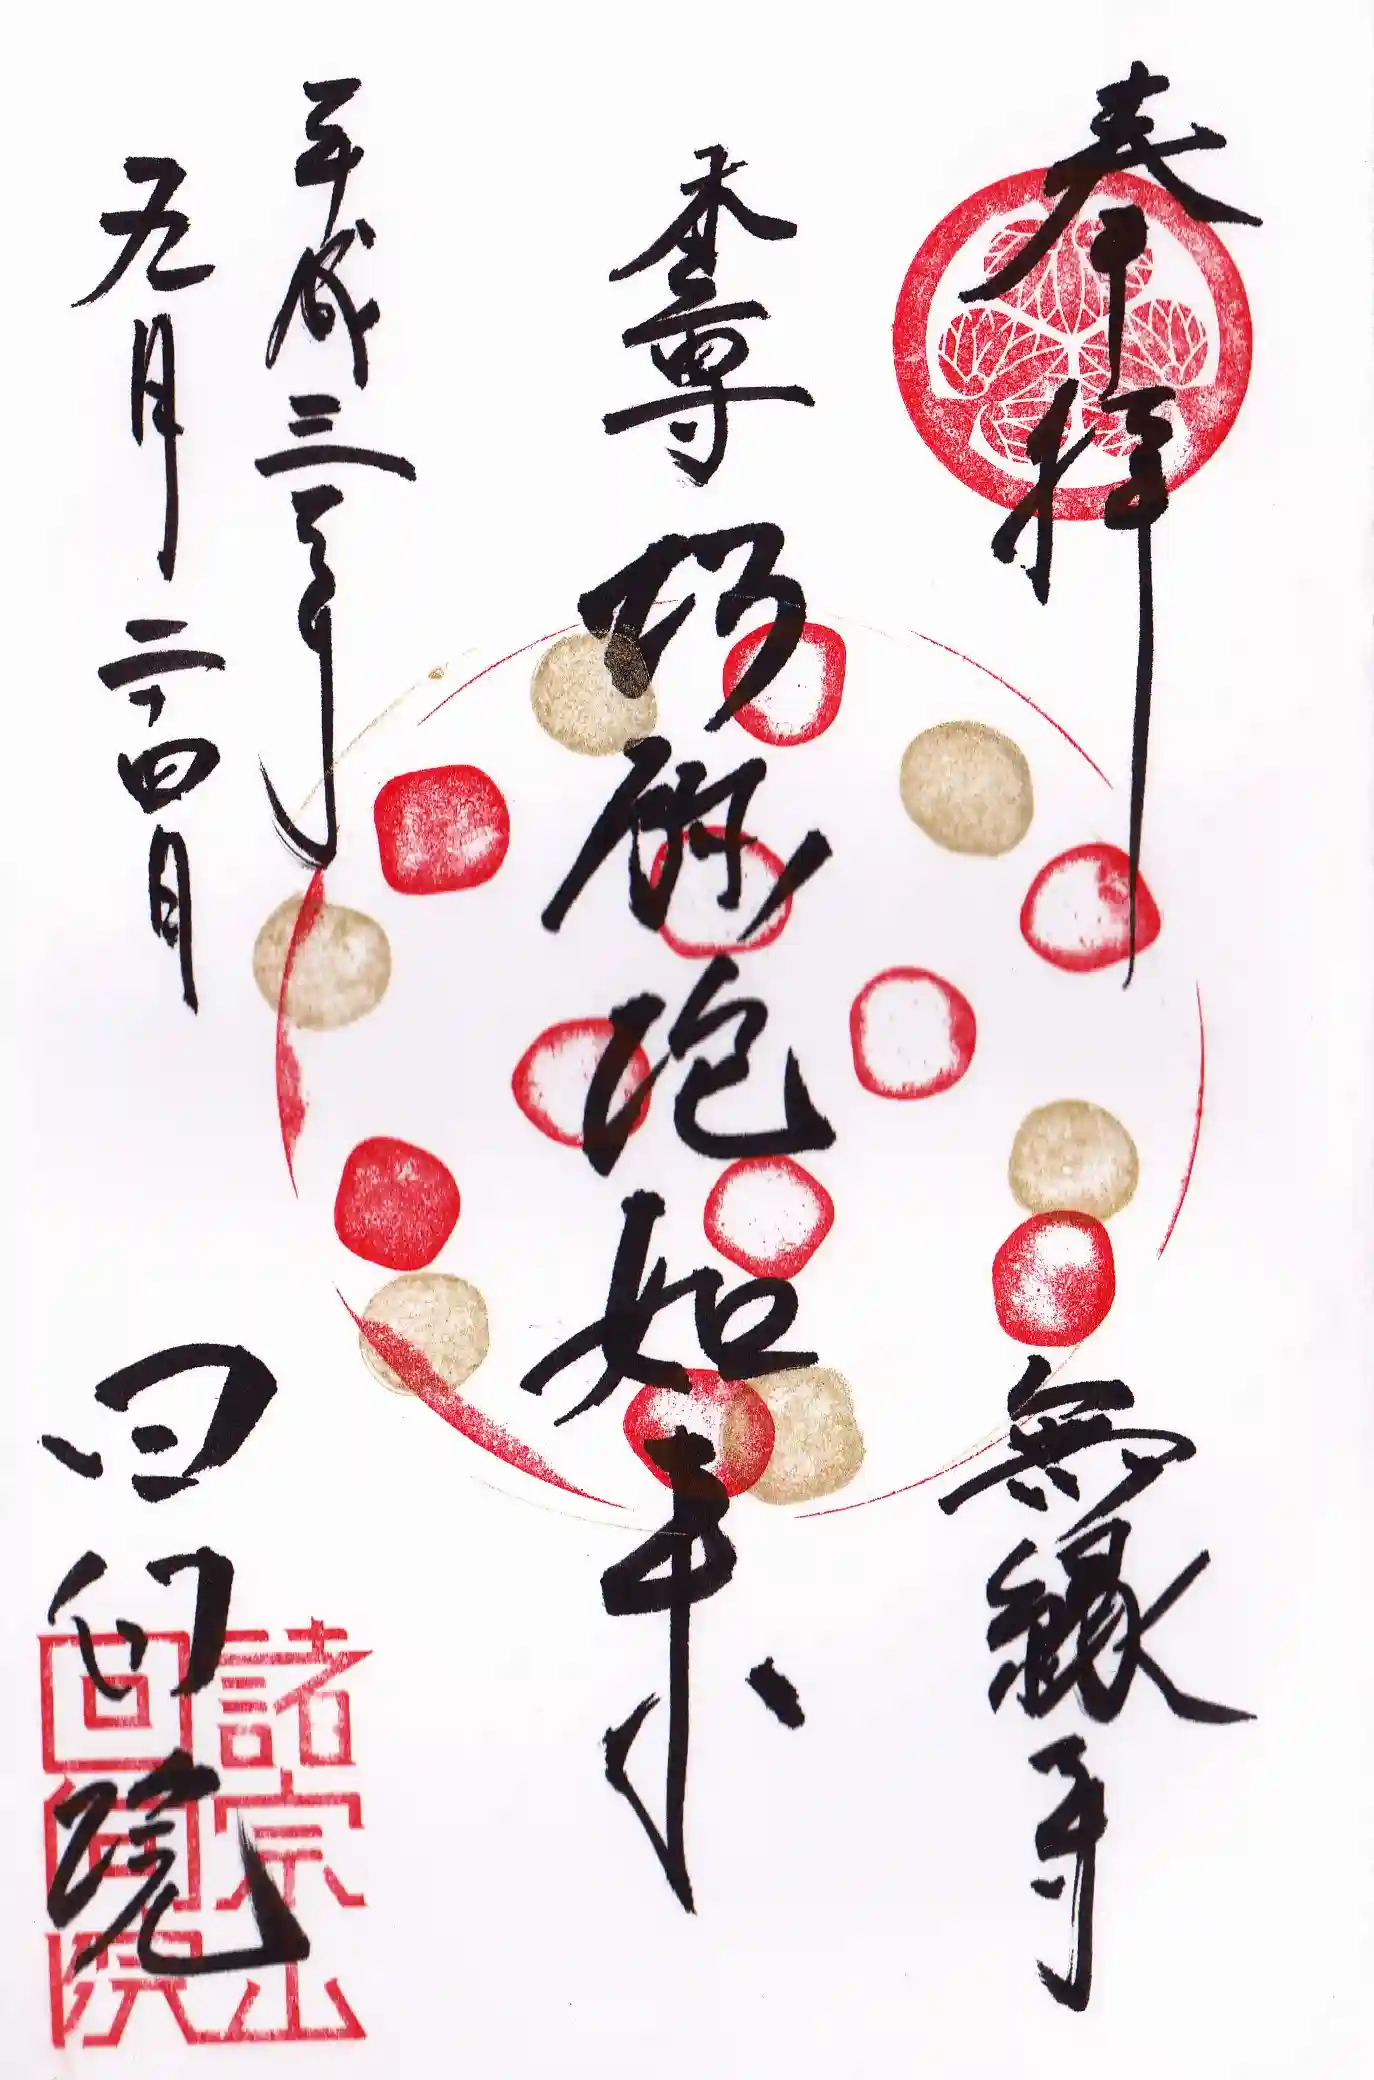 奉拝
無縁寺
本尊
阿弥陀如来
平成三十年
九月二十四日
回向院
諸宗山
回向院